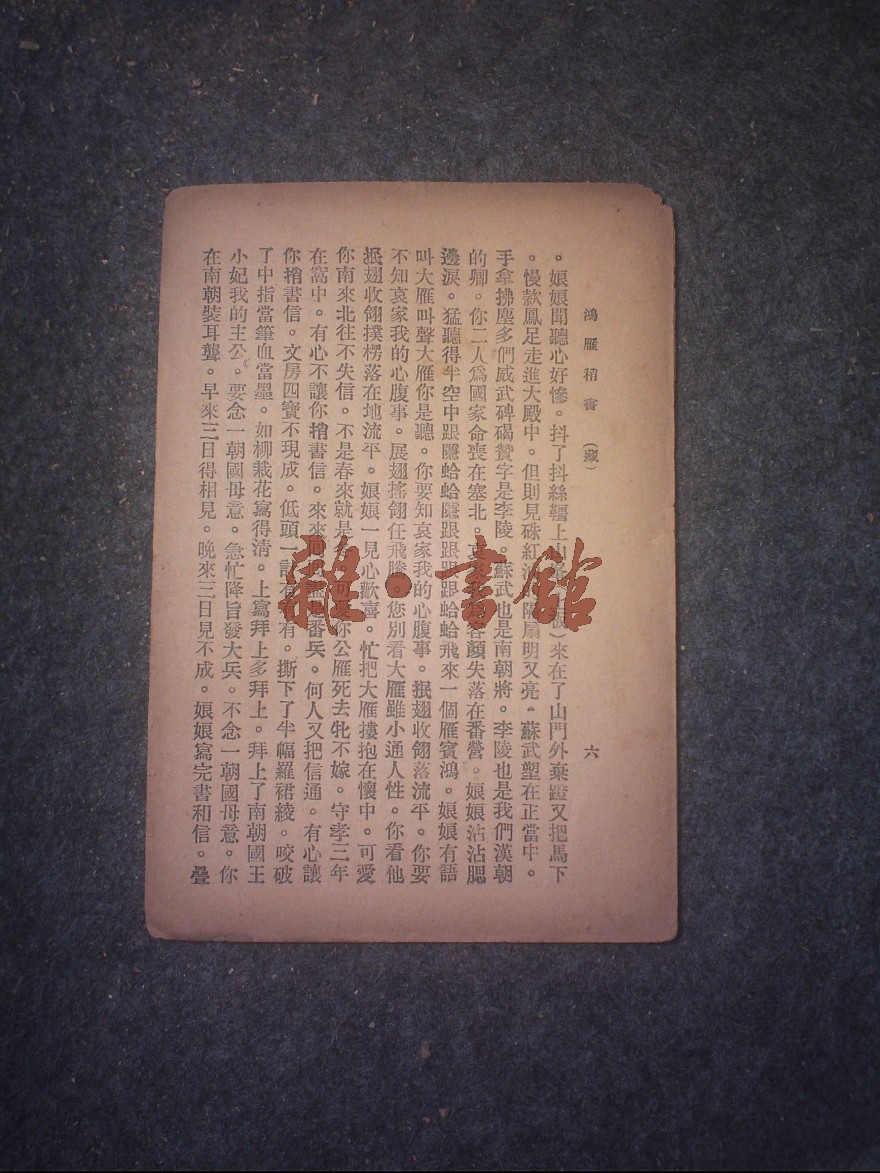 鴻雁稍書 (藏) 六
。娘娘聞聽心好慘。抖了抖絲韁上山 )來在了山門外棄蹬又把馬下
。慢款鳳足走進大殿中。但則見硃紅 隔扇明又亮。蘇武塑在正當中。
手拿拂塵多們威武碑碣贊字是李陵。蘇武也是南朝將。李陵也是我們漢朝
的卿。你二人爲國家命喪在塞北。哀家 容顏失落在番營。娘娘沾沾腮
邊淚。猛聽得半空中跟隱蛤蛤隱跟跟跟跟蛤蛤飛來一個雁賓鴻。娘娘有語
叫大雁叫聲大雁你是聽。你要知哀家我的心腹事。抿翅收翎落流平。你要
不知哀家我的心腹事。展翅搖翎任飛騰。您別看大雁雖小通人性。你看他
抿翅收翎撲楞落在地流平。娘娘一見心歡喜。忙把大雁摟抱在懷中。可愛
你南來北往不失信。不是春來就是冬。可愛你公雁死去牝不嫁。守孝三年
在窩中。有心不讓你捎書信。來來回回 番兵。何人又把信通。有心讓
你捎書信。文房四寶不現成。低頭一計有 有。撕下了半幅羅裙綾。咬破
了中指當筆血當墨。如柳栽花寫得淸。上寫拜上多拜上。拜上了南朝國王
小妃我的主公。要念一朝國母意。急忙降旨發大兵。不念一朝國母意。你
在南朝裝耳聾。早來三日得相見。晚來三日見不成。娘娘寫完書和信。疊
雜·書館